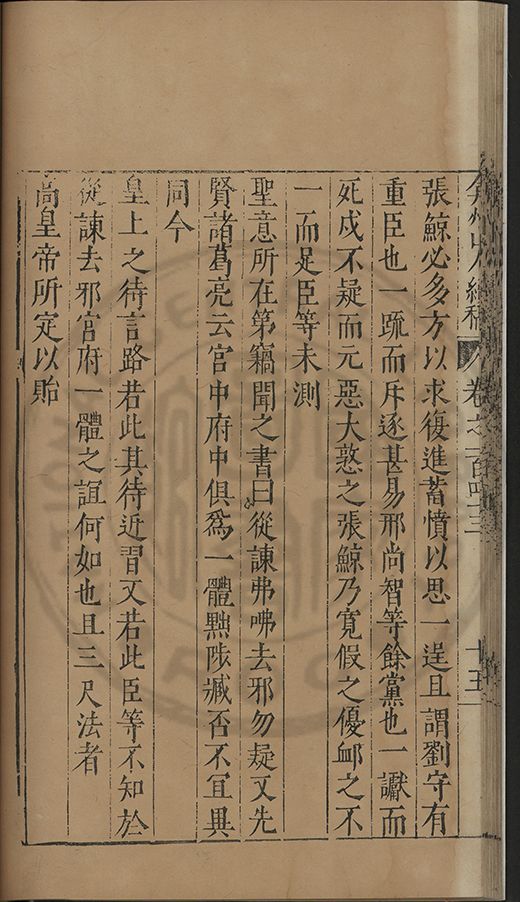 弇州山人續稿 卷之一百四三 十五
張鯨必多方以求復進蓄憤以思一逞且謂劉守有
重臣也一䟽而斥逐甚易邢尚智等餘黨也一讞而
死戍不疑而元惡大憝之張鯨乃寬假之優卹之不
一而足臣等未測
聖意所在第竊聞之書曰從諫弗咈去邪勿疑又先
賢諸葛亮云官中府中俱爲一體黜陟臧否不冝異
同今
皇上之待言路若此其待近習又若此臣等不知於
從諫去邪官府一體之誼何如也且三尺法者
高皇帝所定以貽